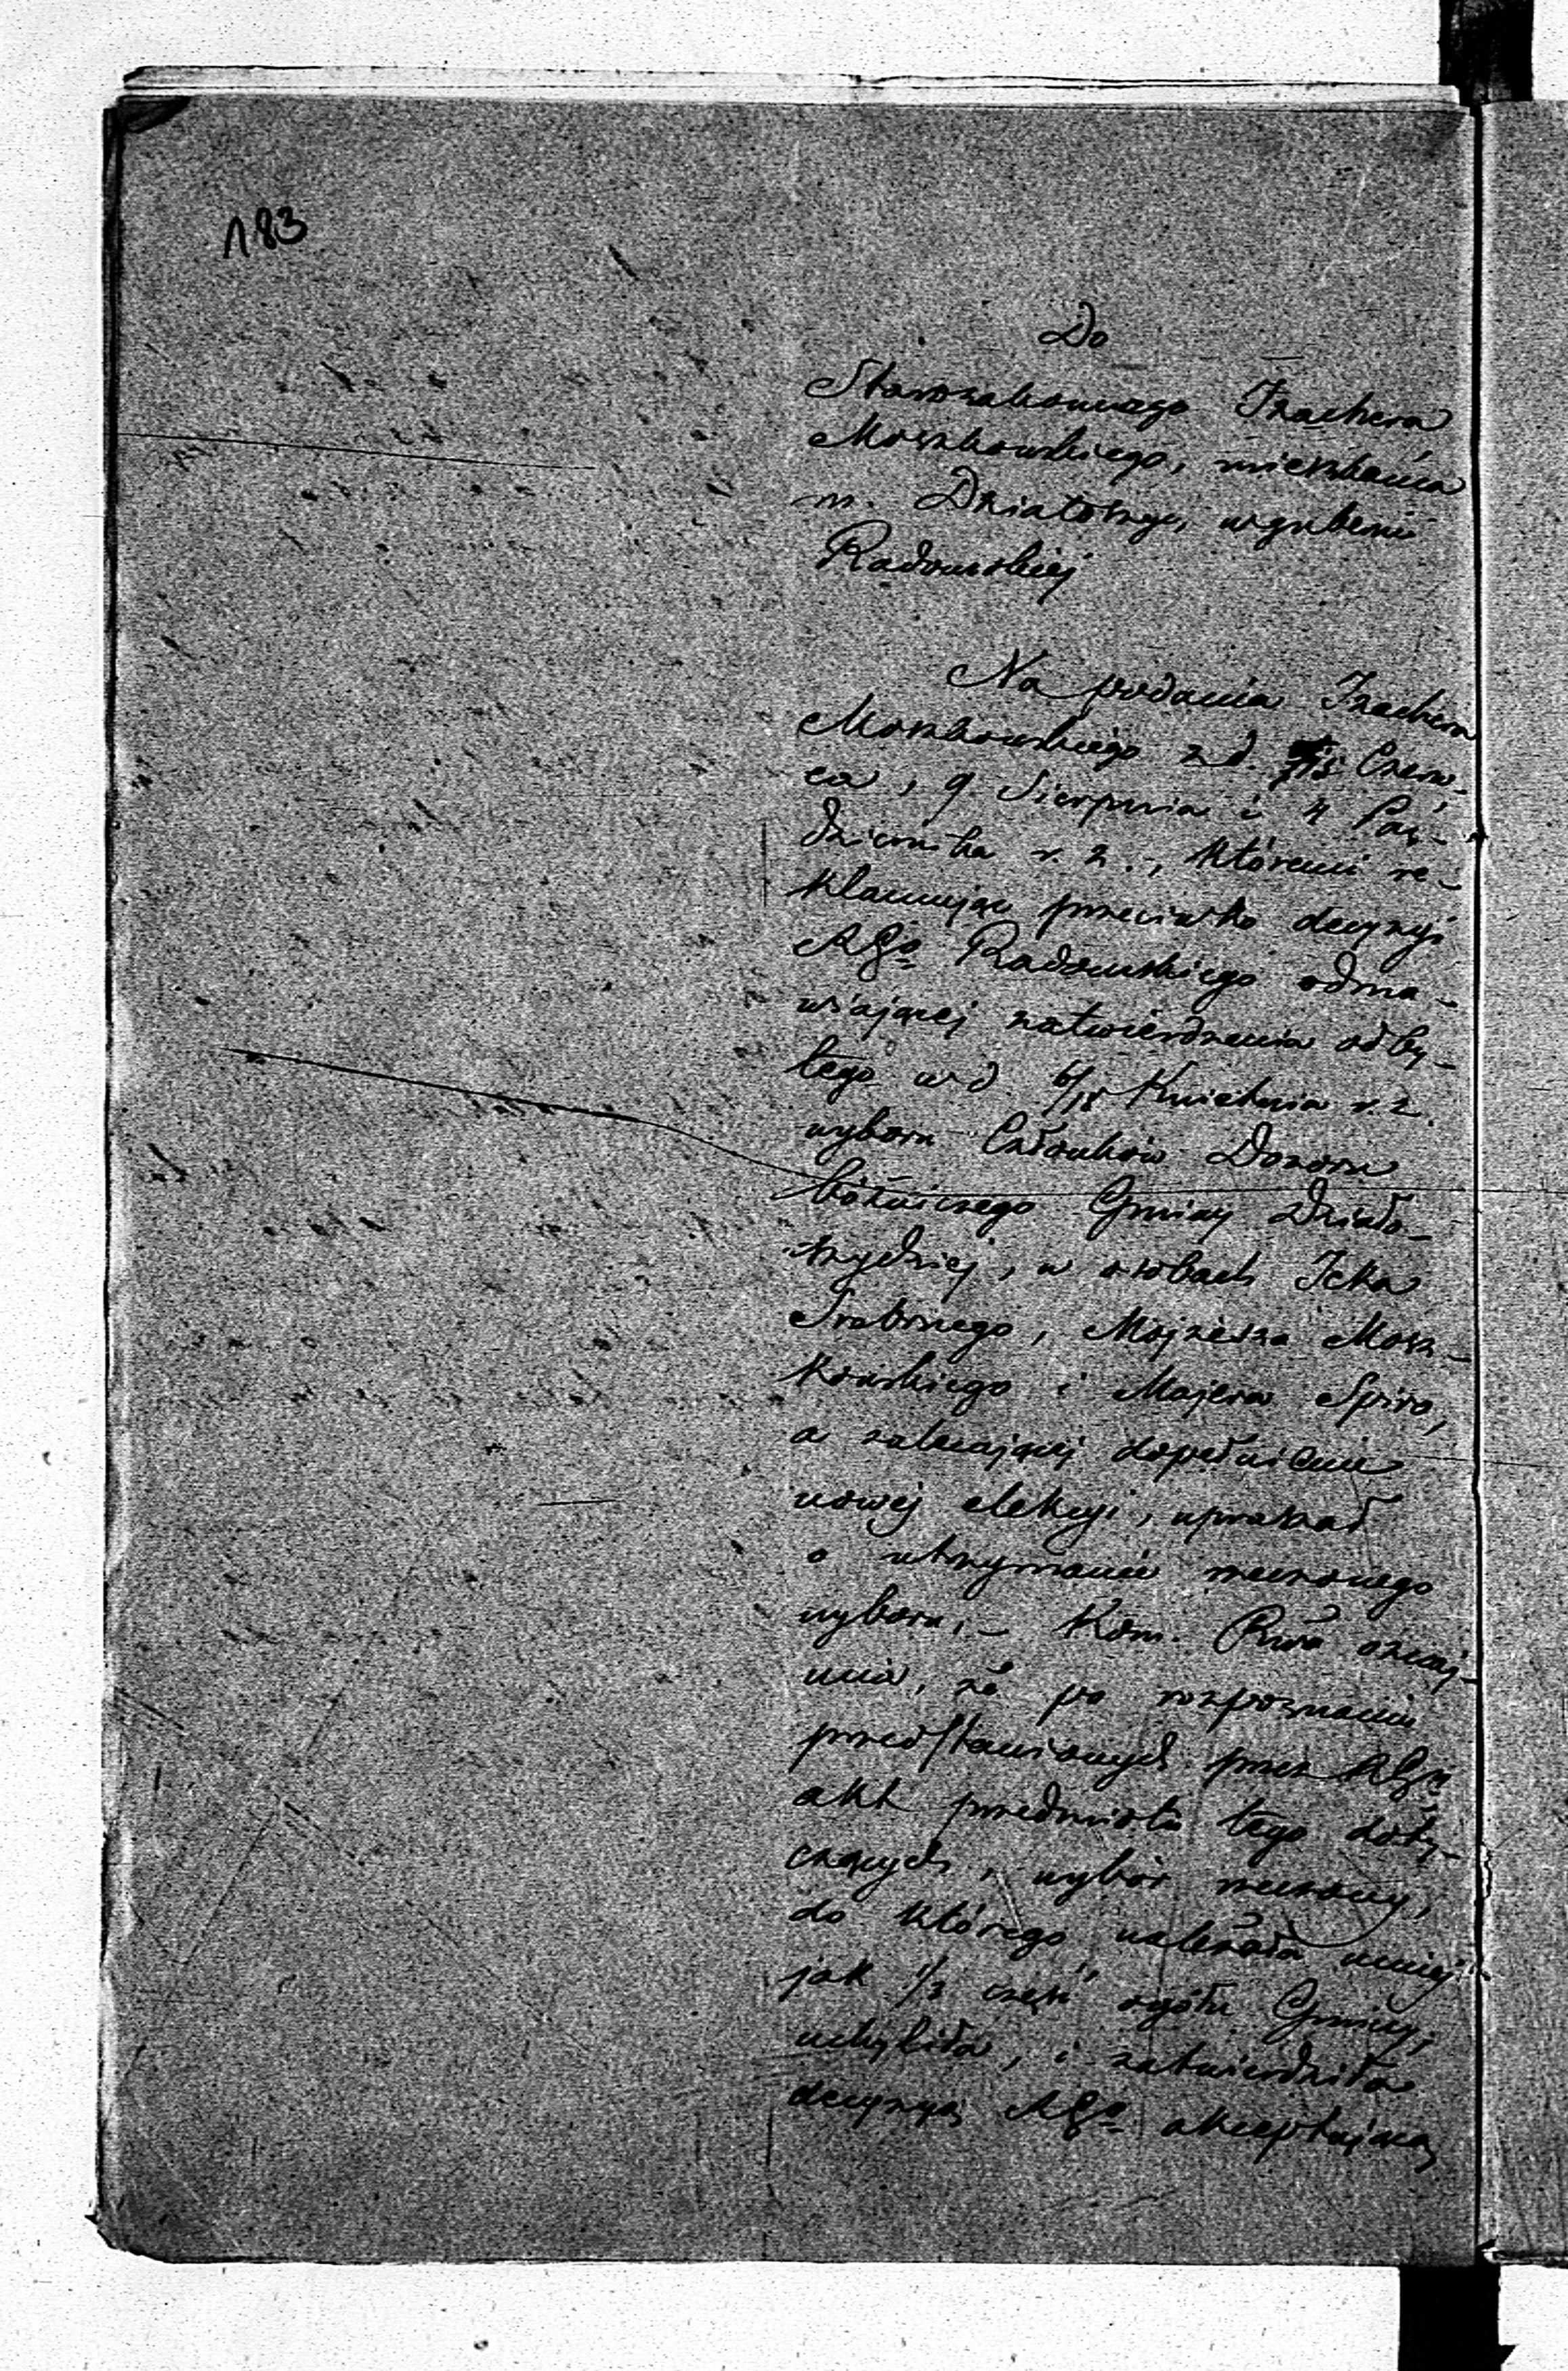 183
Do
Starozakonnego Izachera
Moszkowskiego, mieszkańca
m. Działoszyc, w gubernii
Radomskiej
Na podania Izachera
Moszkowskiego z d. /15 Czerw-
ca, 9 Sierpnia i 4 Paź-
dziernika r. z., któremi re-
klamując przeciwko decyzyi
RGo Radomskiego odma-
wiającej zatwierdzenia odby-
tego w d. 6/18 Kwietnia r. z.
wyboru Członków Dozoru
bóżniczego Gminy Działo-
szyckiej, w osobach Icka
Srebrnego, Mojżesza Mosz-
kowskiego i Majera Spiro,
a zalecającej dopełnienie
nowej elekcyi, upraszał
o utrzymanie rzeczonego
wyboru, – Kom. Rwa oznaj-
mia, że po rozpoznaniu
przedstawionych przez RGn
akt przedmiotu tego doty-
czących, wybór rzeczony,
do którego należała mniej
jak 1/3 część ogółu Gminy,
uchyliła, i zatwierdziła
decyzyą RGo akceptującą